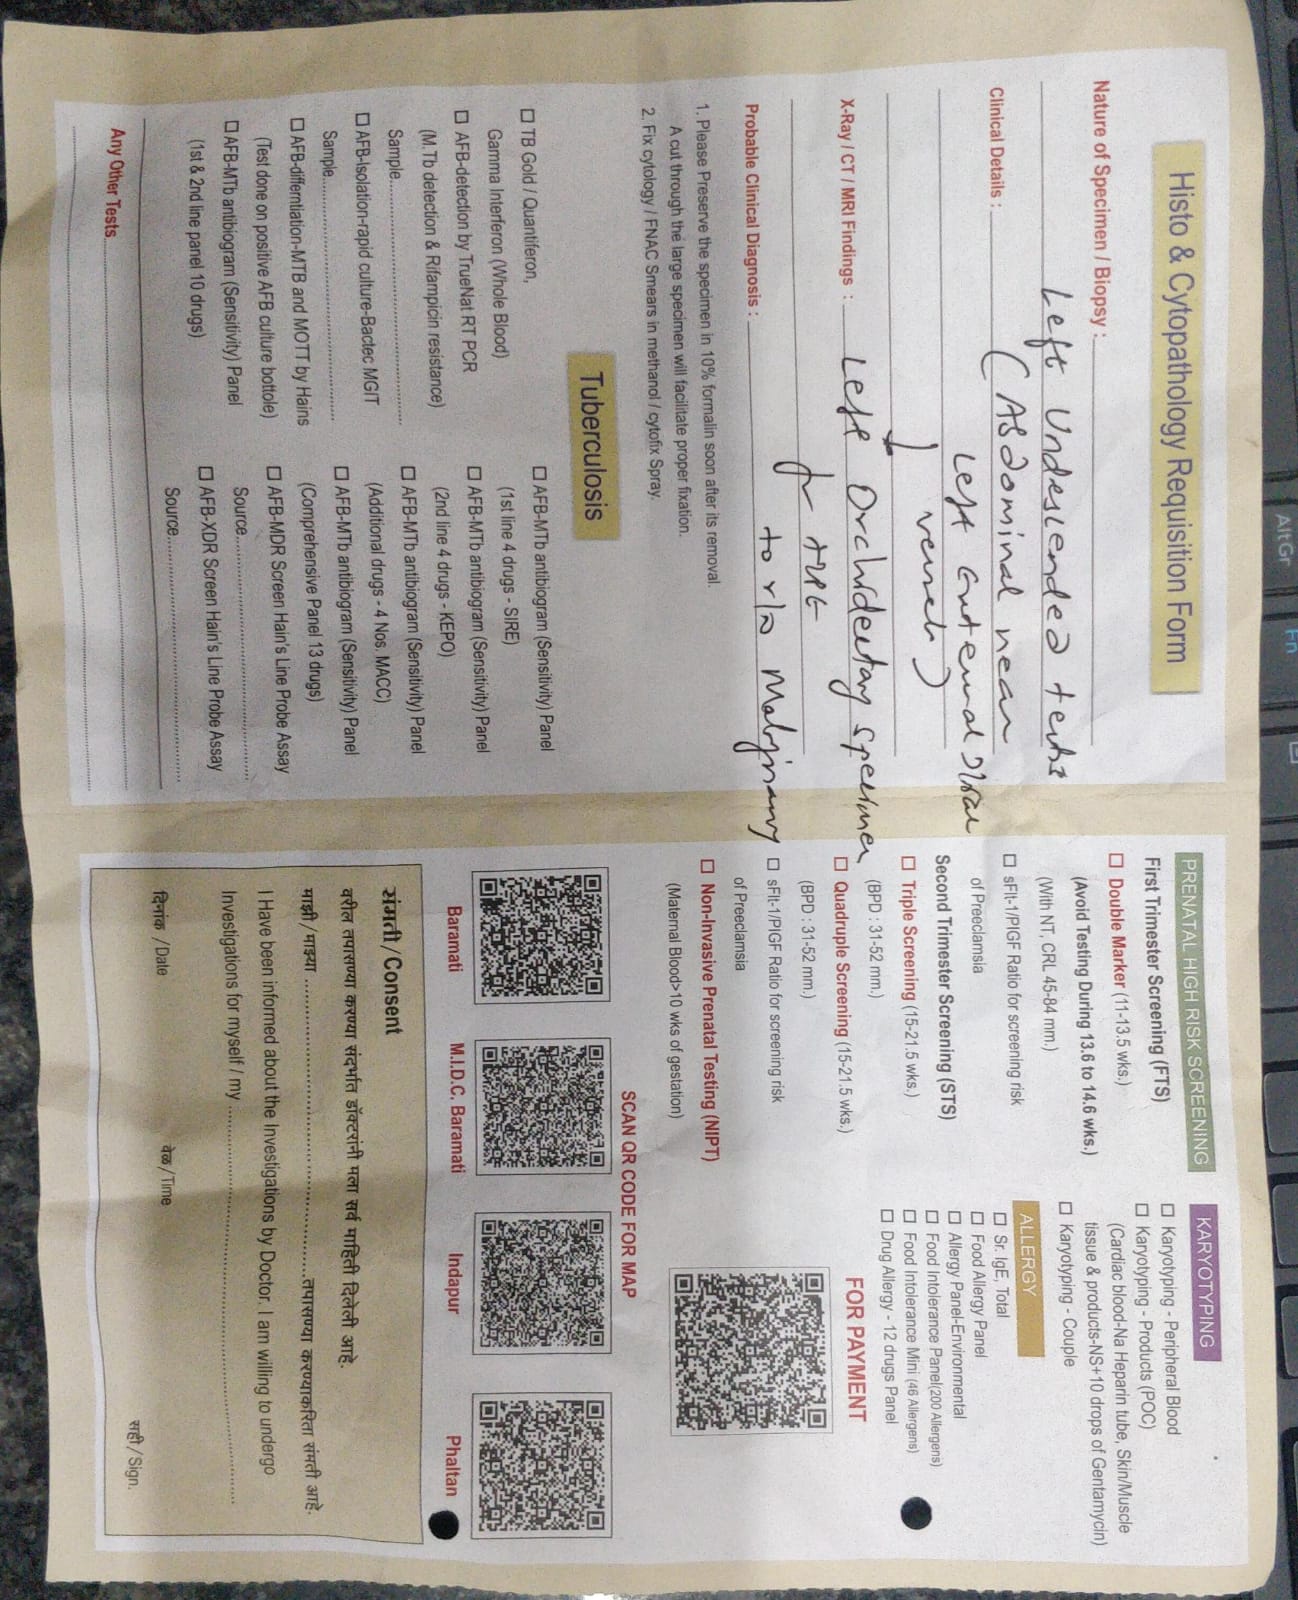 Histo & Cytopathology Requisition Form
Nature of Specimen / Biopsy :
Left Undescended testis
Clinical Details :
( Abdominal near
Left external iliac
vessels )
X-Ray / CT / MRI Findings :
Left Orchidectomy specimen
for HPE
Probable Clinical Diagnosis :
to r/o Malignancy
1. Please Preserve the specimen in 10% formalin soon after its removal.
A cut through the large specimen will facilitate proper fixation.
2. Fix cytology / FNAC Smears in methanol / cytofix Spray.
Tuberculosis
☐ TB Gold / Quantiferon,
Gamma Interferon (Whole Blood)
☐ AFB-detection by TrueNat RT PCR
(M.Tb detection & Rifampicin resistance)
Sample
☐ AFB-Isolation-rapid culture-Bactec MGIT
Sample
☐ AFB-differntiation-MTB and MOTT by Hains
(Test done on positive AFB culture bottole)
☐ AFB-MTb antibiogram (Sensitivity) Panel
(1st & 2nd line panel 10 drugs)
☐ AFB-MTb antibiogram (Sensitivity) Panel
(1st line 4 drugs - SIRE)
☐ AFB-MTb antibiogram (Sensitivity) Panel
(2nd line 4 drugs - KEPO)
☐ AFB-MTb antibiogram (Sensitivity) Panel
(Additional drugs - 4 Nos. MACC)
☐ AFB-MTb antibiogram (Sensitivity) Panel
(Comprehensive Panel 13 drugs)
☐ AFB-MDR Screen Hain's Line Probe Assay
Source
☐ AFB-XDR Screen Hain's Line Probe Assay
Source
Any Other Tests
PRENATAL HIGH RISK SCREENING
First Trimester Screening (FTS)
☐ Double Marker (11-13.5 wks.)
(Avoid Testing During 13.6 to 14.6 wks.)
(With NT, CRL 45-84 mm.)
☐ sFlt-1/PIGF Ratio for screening risk
of Preeclamsia
Second Trimester Screening (STS)
☐ Triple Screening (15-21.5 wks.)
(BPD : 31-52 mm.)
☐ Quadruple Screening (15-21.5 wks.)
(BPD : 31-52 mm.)
☐ sFlt-1/PIGF Ratio for screening risk
of Preeclamsia
☐ Non-Invasive Prenatal Testing (NIPT)
(Maternal Blood>10 wks of gestation)
KARYOTYPING
☐ Karyotyping - Peripheral Blood
☐ Karyotyping - Products (POC)
(Cardiac blood-Na Heparin tube, Skin/Muscle
tissue & products-NS+10 drops of Gentamycin)
☐ Karyotyping - Couple
ALLERGY
☐ Sr. IgE, Total
☐ Food Allergy Panel
☐ Allergy Panel-Environmental
☐ Food Intolerance Panel(200 Allergens)
☐ Food Intolerance Mini (46 Allergens)
☐ Drug Allergy - 12 drugs Panel
FOR PAYMENT
SCAN QR CODE FOR MAP
Baramati M.I.D.C. Baramati Indapur Phaltan
संमती / Consent
वरील तपासण्या करण्या संदर्भात डॉक्टरांनी मला सर्व माहिती दिलेली आहे.
माझी / माझ्या ........ तपासण्या करण्याकरिता संमती आहे.
I Have been informed about the Investigations by Doctor. I am willing to undergo
Investigations for myself / my
दिनांक / Date वेळ / Time सही / Sign.
AltGr
Fn